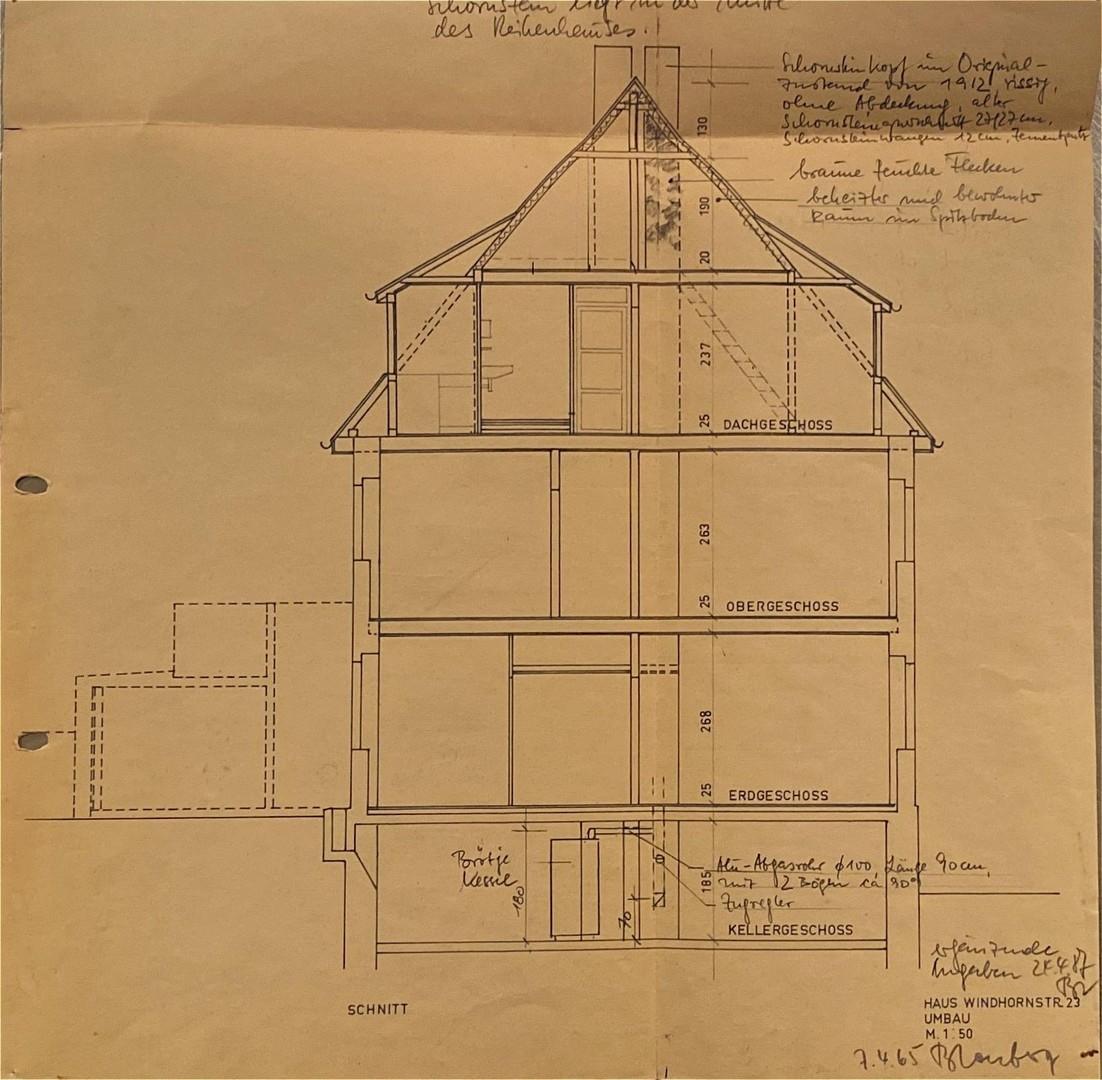 Schornstein liegt in der Mitte
des Reihenhauses.
Schornsteinkopf im Original-
zustand von 1912, rissig,
ohne Abdeckung, alter
Schornsteinquerschnitt 27/27cm,
Schornsteinwangen 12cm, Zementputz
braune feuchte Flecken
beheizter und bewohnter
Raum im Spitzboden
130
190
20
237
25
DACHGESCHOSS
263
25
OBERGESCHOSS
268
25
ERDGESCHOSS
Brötje
Kessel
180
70
185
Alu-Abgasrohr ø100, Länge 90cm,
mit 2 Bögen ca 90°
Zugregler
KELLERGESCHOSS
ergänzende
Angaben 24.4.87
SCHNITT
HAUS WINDHORNSTR. 23
UMBAU
M. 1:50
7.4.65